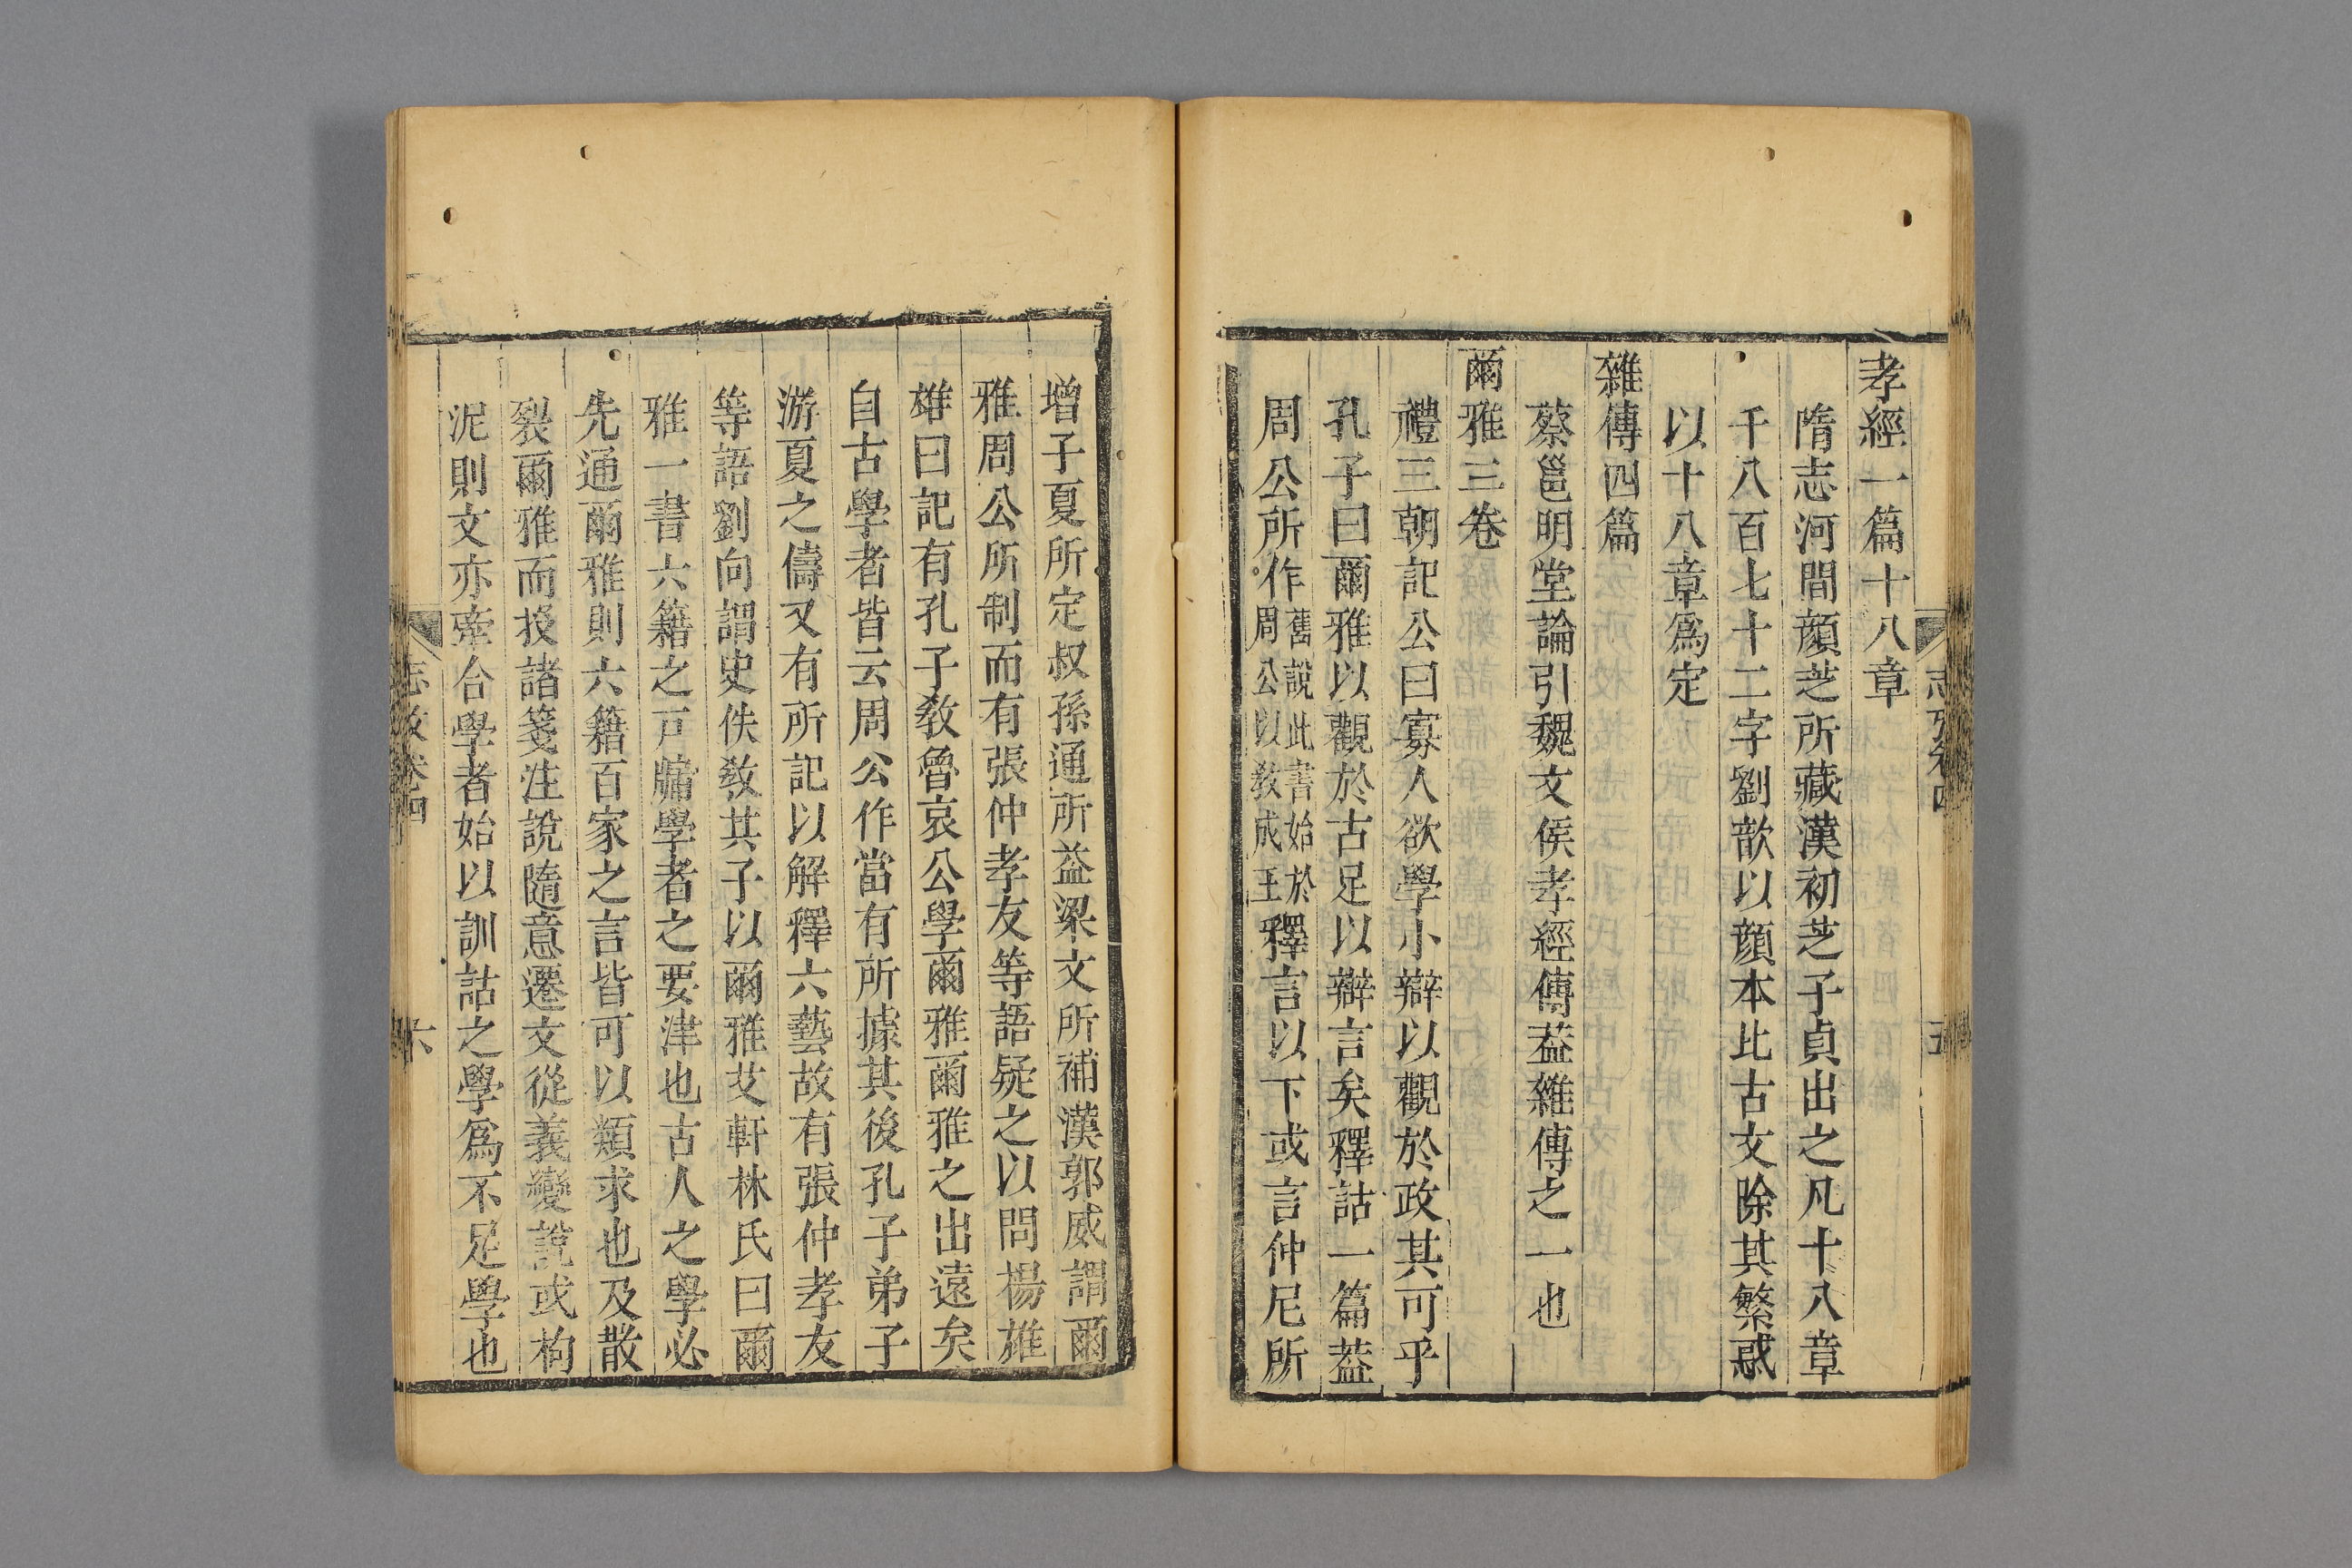 孝經一篇十八章
隋志河間顔芝所藏漢初芝子貞出之凡十八章
千八百七十二字劉歆以顔本比古文除其繁惑
以十八章爲定
雜傳四篇
蔡邕明堂論引魏文侯孝經傳葢雜傳之一也
爾雅三卷
禮三朝記公曰寡人欲學小辯以觀於政其可乎
孔子曰爾雅以觀於古足以辯言矣釋詁一篇葢
周公所作舊說此書始於周公以敎成王釋言以下或言仲尼所
增子夏所定叔孫通所益梁文所補漢郭威謂爾
雅周公所制而有張仲孝友等語疑之以問楊雄
雄曰記有孔子敎魯哀公學爾雅爾雅之出遠矣
自古學者皆云周公作當有所據其後孔子弟子
游夏之儔又有所記以解釋六藝故有張仲孝友
等語劉向謂史佚敎其子以爾雅艾軒林氏曰爾
雅一書六籍之戸牖學者之要津也古人之學必
先通爾雅則六籍百家之言皆可以類求也及散
裂爾雅而投諸箋注說隨意遷文從義變說或拘
泥則文亦牽合學者始以訓詁之學爲不足學也
志攷卷四
六